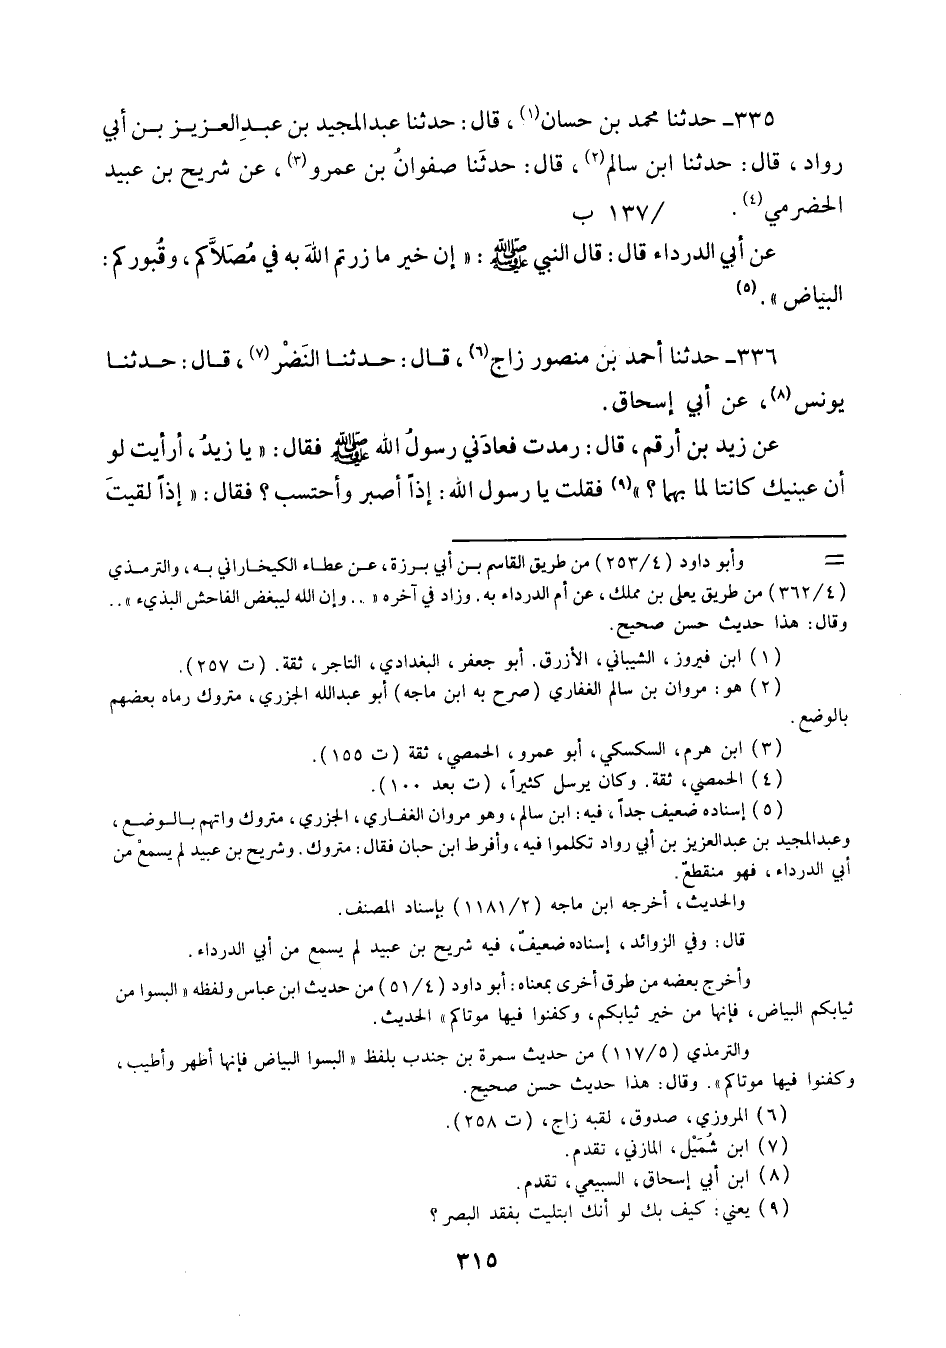 ٣٣٥ـ حدثنا محمد بن حسان(١) ، قال : حدثنا عبدالمجيد بن عبدالعزيز بن أبي
رواد ، قال : حدثنا ابن سالم(٢) ، قال : حدثَنا صفوانُ بن عمرو(٣) ، عن شريح بن عبيد
الحضرمي(٤) . /١٣٧ ب
عن أبي الدرداء قال : قال النبي ﷺ : « إن خير ما زرتم اللهَ به في مُصَلاَّكم ، وقُبوركم :
البياض » . (٥)
٣٣٦ـ حدثنا أحمد بن منصور زاج(٦) ، قال : حدثنا النَضْر(٧) ، قال : حدثنا
يونس(٨) ، عن أبي إسحاق .
عن زيد بن أرقم ، قال : رمدت فعادَني رسولُ الله ﷺ فقال : « يا زيدُ ، أرأيت لو
أن عينيك كانتا لما بهما ؟ »(٩) فقلت يا رسول الله : إذاً أصبر وأحتسب ؟ فقال : « إذاً لقيتَ
= وأبو داود ( ٢٥٣/٤ ) من طريق القاسم بن أبي برزة ، عن عطاء الكيخاراني به ، والترمذي
( ٣٦٢/٤ ) من طريق يعلى بن مملك ، عن أم الدرداء به . وزاد في آخره « . . وإن الله ليبغض الفاحش البذيء » . .
وقال : هذا حديث حسن صحيح .
(١) ابن فيروز ، الشيباني ، الأزرق . أبو جعفر ، البغدادي ، التاجر ، ثقة . (ت ٢٥٧) .
(٢) هو : مروان بن سالم الغفاري (صرح به ابن ماجه) أبو عبدالله الجزري ، متروك رماه بعضهم
بالوضع .
(٣) ابن هرم ، السكسكي ، أبو عمرو ، الحمصي ، ثقة (ت ١٥٥) .
(٤) الحمصي ، ثقة . وكان يرسل كثيراً ، (ت بعد ١٠٠) .
(٥) إسناده ضعيف جداً ، فيه : ابن سالم ، وهو مروان الغفاري ، الجزري ، متروك واتهم بالوضع ،
وعبدالمجيد بن عبدالعزيز بن أبي رواد تكلموا فيه ، وأفرط ابن حبان فقال : متروك . وشريح بن عبيد لم يسمعْ من
أبي الدرداء ، فهو منقطعٌ .
والحديث ، أخرجه ابن ماجه (١١٨١/٢) بإسناد المصنف .
قال : وفي الزوائد ، إسناده ضعيفٌ ، فيه شريح بن عبيد لم يسمع من أبي الدرداء .
وأخرج بعضه من طرق أخرى بمعناه : أبو داود (٥١/٤) من حديث ابن عباس ولفظه « البسوا من
ثيابكم البياض ، فإنها من خير ثيابكم ، وكفنوا فيها موتاكم » الحديث .
والترمذي (١١٧/٥) من حديث سمرة بن جندب بلفظ « البسوا البياض فإنها أطهر وأطيب ،
وكفنوا فيها موتاكم » . وقال : هذا حديث حسن صحيح .
(٦) المروزي ، صدوق ، لقبه زاج ، (ت ٢٥٨) .
(٧) ابن شُمَيْل ، المازني ، تقدم .
(٨) ابن أبي إسحاق ، السبيعي ، تقدم .
(٩) يعني : كيف بك لو أنك ابتليت بفقد البصر ؟
٣١٥